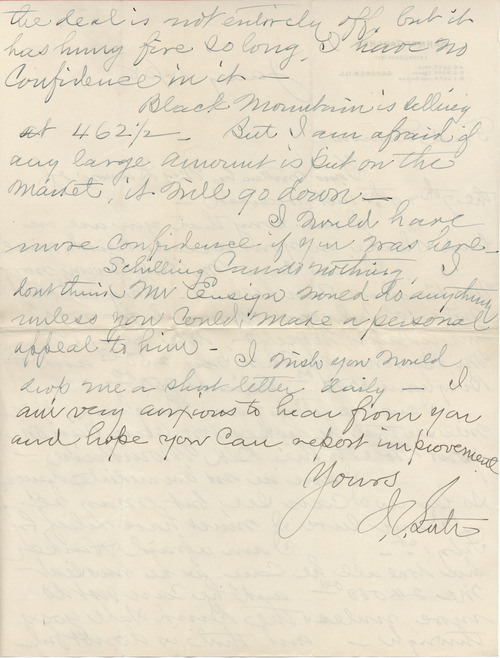 the deal is not entirely off, but it
has hung fire so long, I have no
Confidence in it —
Black Mountain is selling
at 462 1/2 — But I am afraid if
any large amount is put on the
market, it will go down —
I would have
more Confidence if you was here —
Schilling Can do nothing, I
dont think Mr Ensign would do anything
unless you Could, make a personal
appeal to him — I wish you would
drop me a short letter daily — I
am very anxious to hear from you
and hope you Can report improvement
Yours